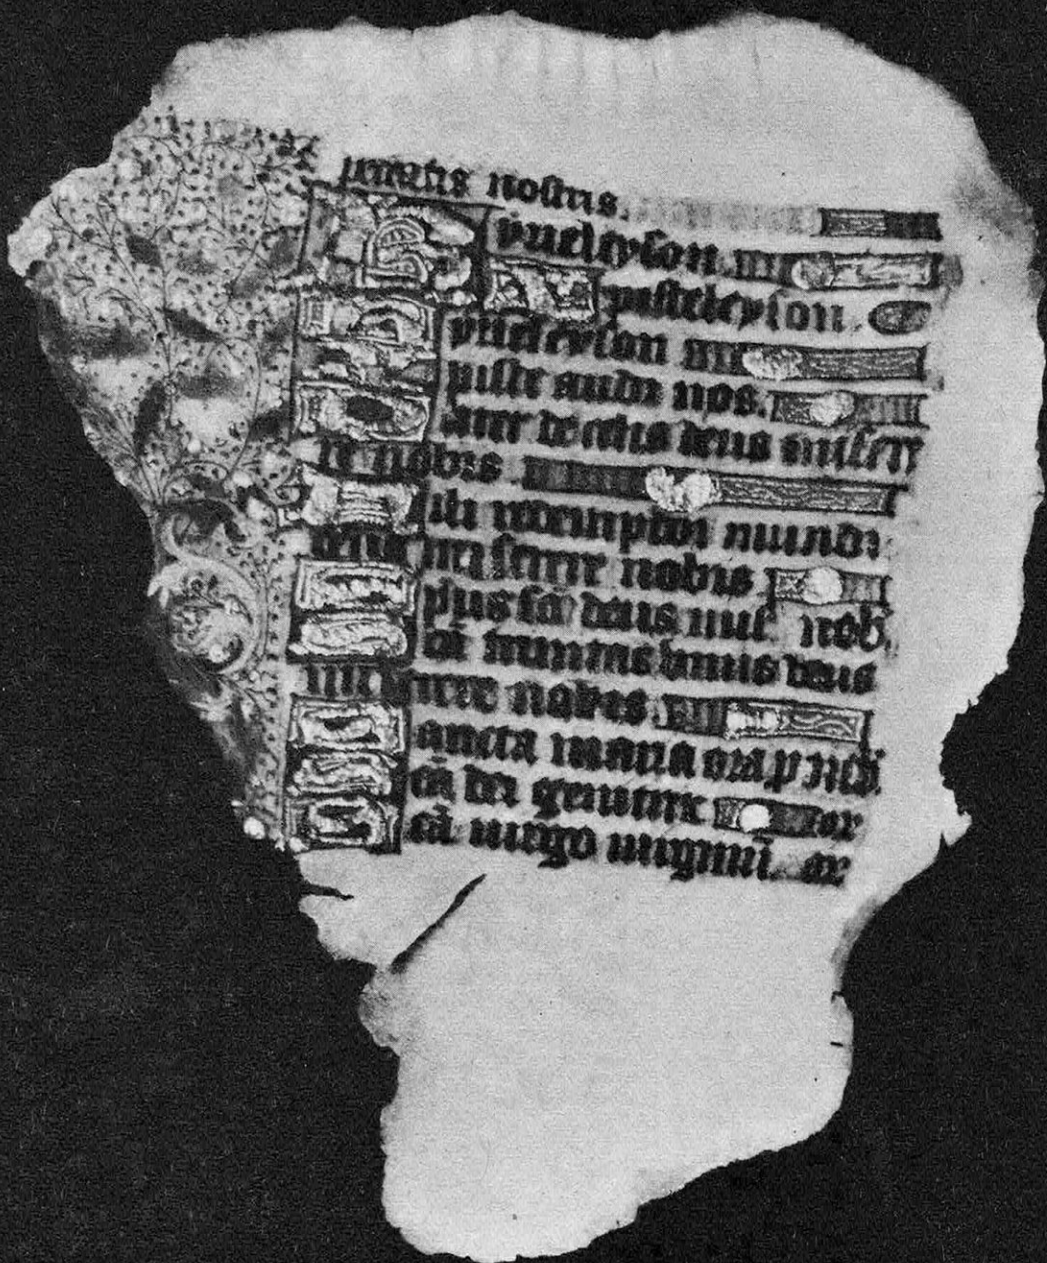 peccatis nostris.
Kyrieleyson.
Xpisteleyson.
Kyrieleyson
Xpiste audi nos.
Pater de celis deus misere
re nobis
Fili redemptor mundi
deus miserere nobis
Spūs scē deus mis̄ nob̄
Scā trinitas unus deus
miserere nobis
Sancta maria ora p nob̄.
Scā dei genitrix or
Scā virgo virginū or